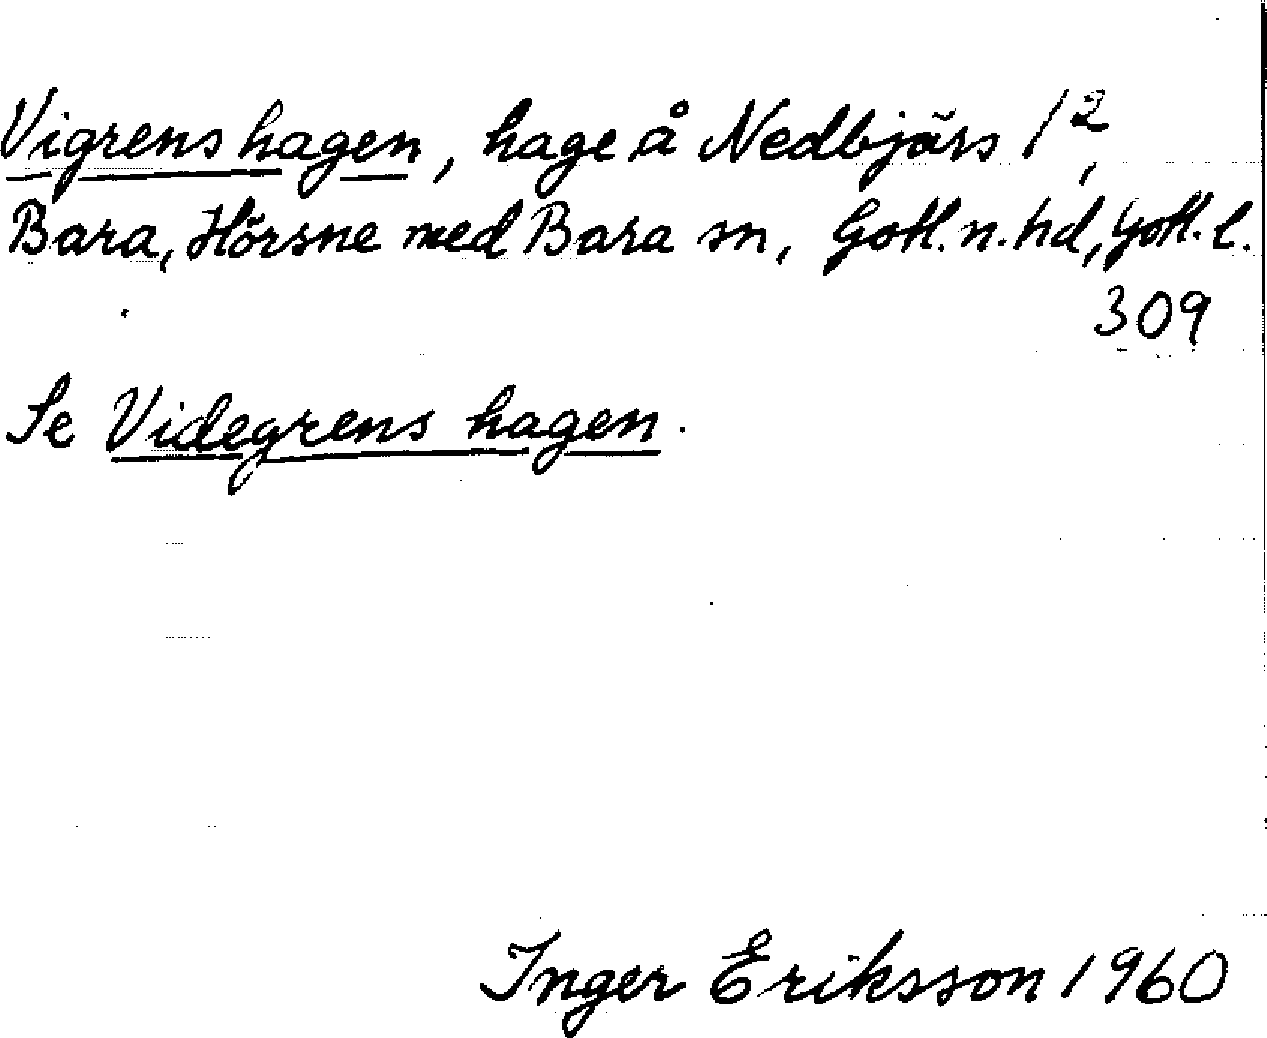 Vigrens hagen, hage å Nedbjärs 1²,
Bara, Hörsne med Bara sn, Gotl. n. hd, Gotl. l.
309
Se Videgrens hagen.
Inger Eriksson 1960